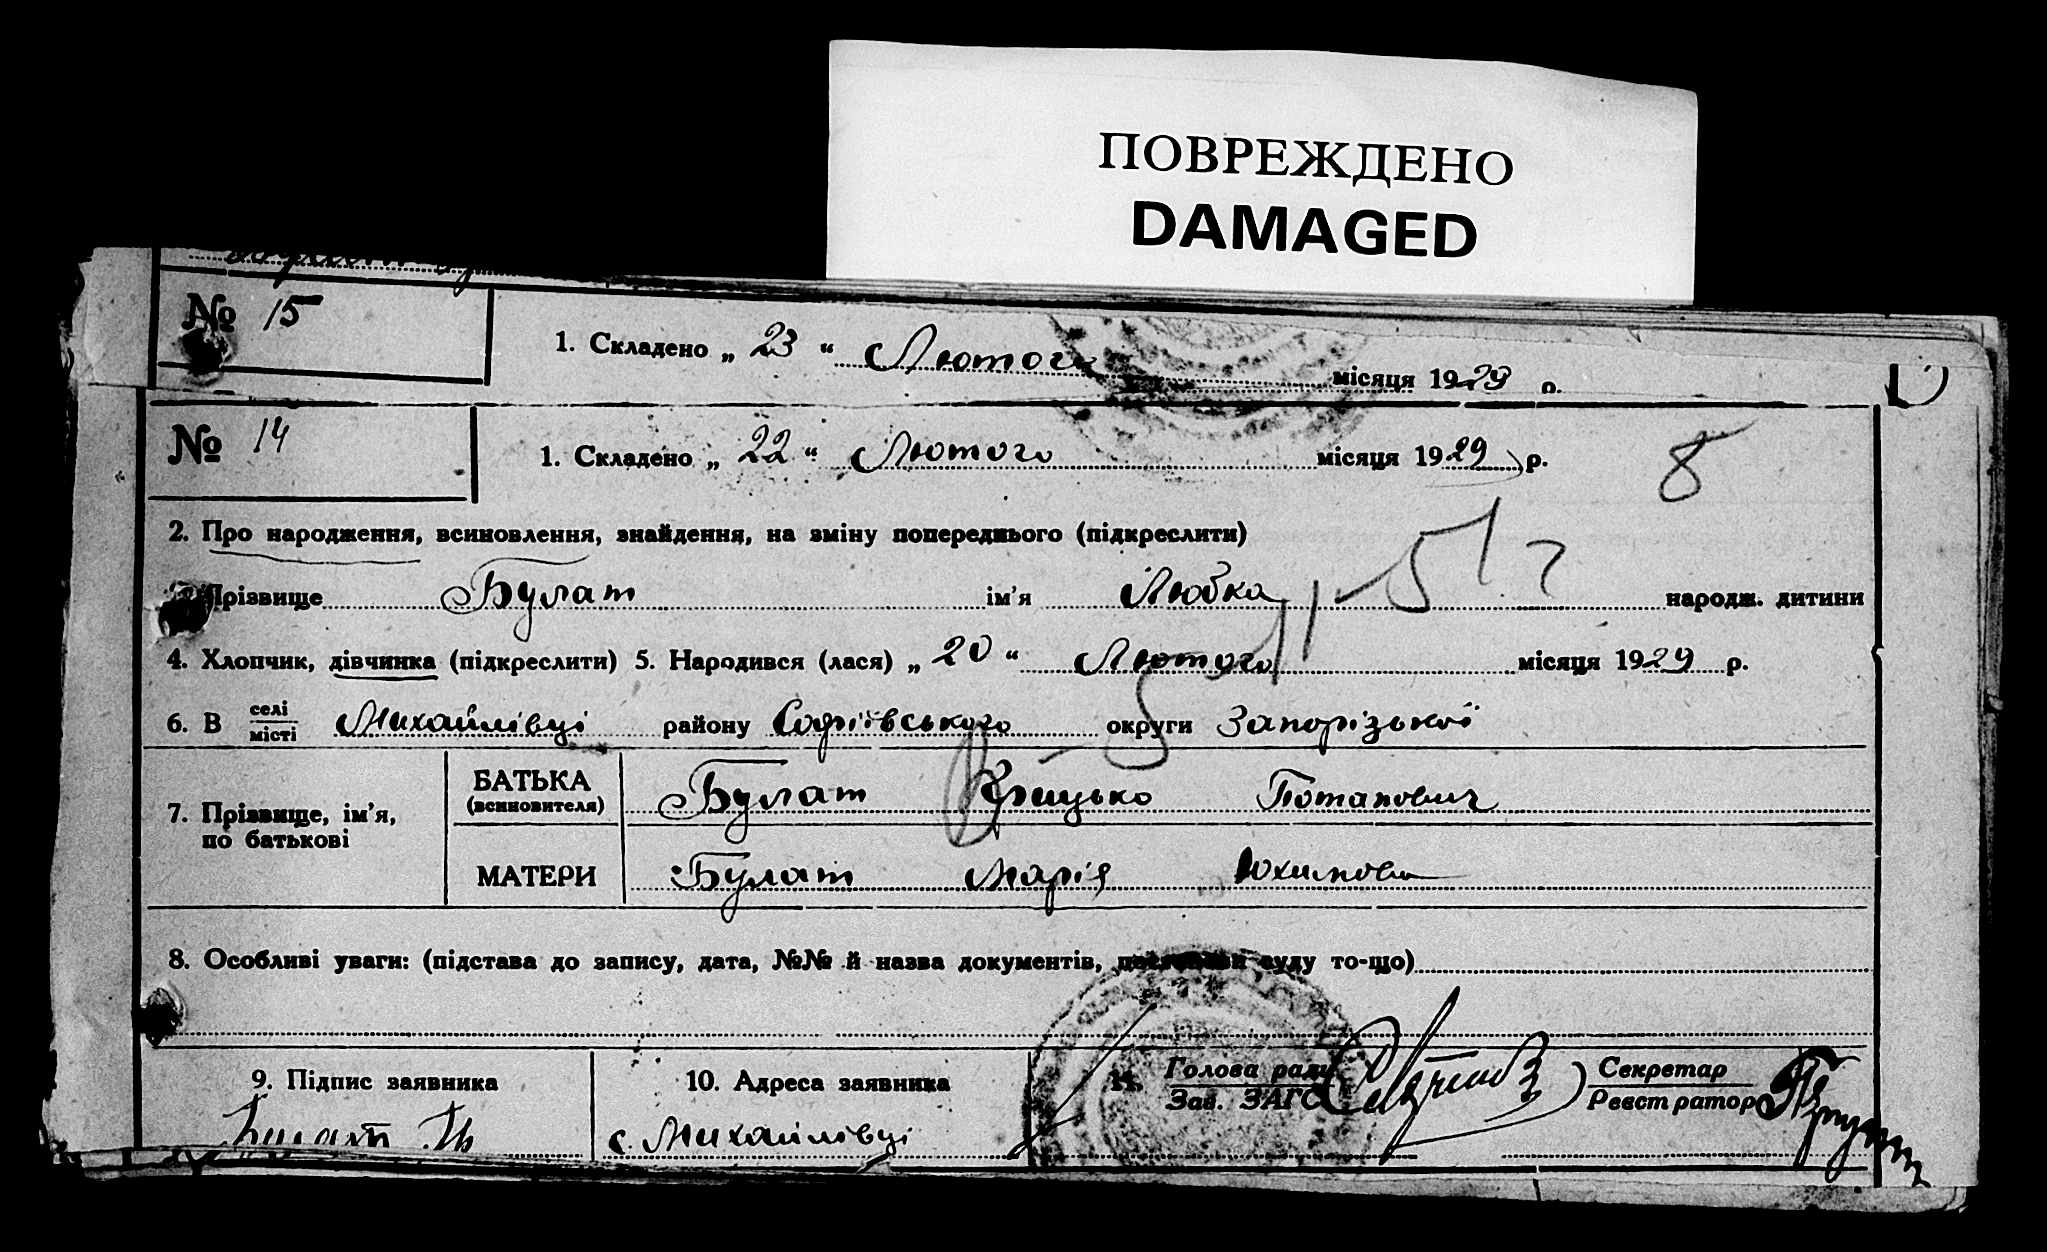 ПОВРЕЖДЕНО
DAMAGED
№ 15
1. Складено „ 23 “ Лютого місяця 1929 р.
№ 14
1. Складено „ 22 “ Лютого місяця 1929 р.
8
2. Про народження, всиновлення, знайдення, на зміну попереднього (підкреслити)
Прізвище Булат ім'я Любка народж. дитини
4. Хлопчик, дівчинка (підкреслити) 5. Народився (лася) „ 20 “ Лютого місяця 1929 р.
6. В селі місті Михайлівці району Софіівського округи Запорізької
7. Прізвище, ім'я, по батькові
БАТЬКА (всиновителя) Булат Грицько Потапович
МАТЕРИ Булат Марія Юхимовн
8. Особливі уваги: (підстава до запису, дата, №№ й назва документів, постанови суду то-що)
9. Підпис заявника
Булат Гр
10. Адреса заявника
с. Михайлівці
11. Голова ради Зав. ЗАГС
Секретар Реєстратор